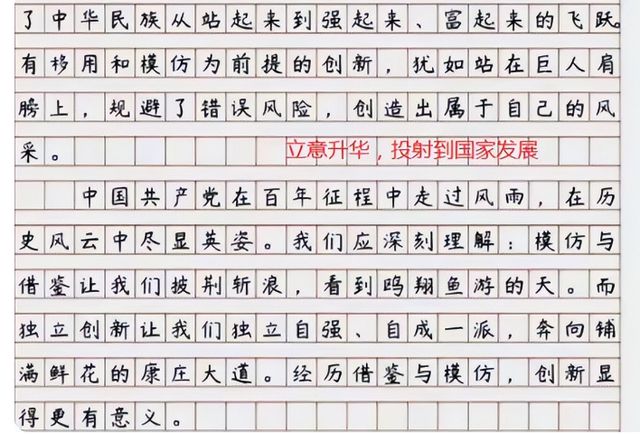 了中华民族从站起来到强起来、富起来的飞跃。
有移用和模仿为前提的创新，犹如站在巨人肩
膀上，规避了错误风险，创造出属于自己的风
采。
立意升华，投射到国家发展
中国共产党在百年征程中走过风雨，在历
史风云中尽显英姿。我们应深刻理解：模仿与
借鉴让我们披荆斩浪，看到鸥翔鱼游的天。而
独立创新让我们独立自强、自成一派，奔向铺
满鲜花的康庄大道。经历借鉴与模仿，创新显
得更有意义。